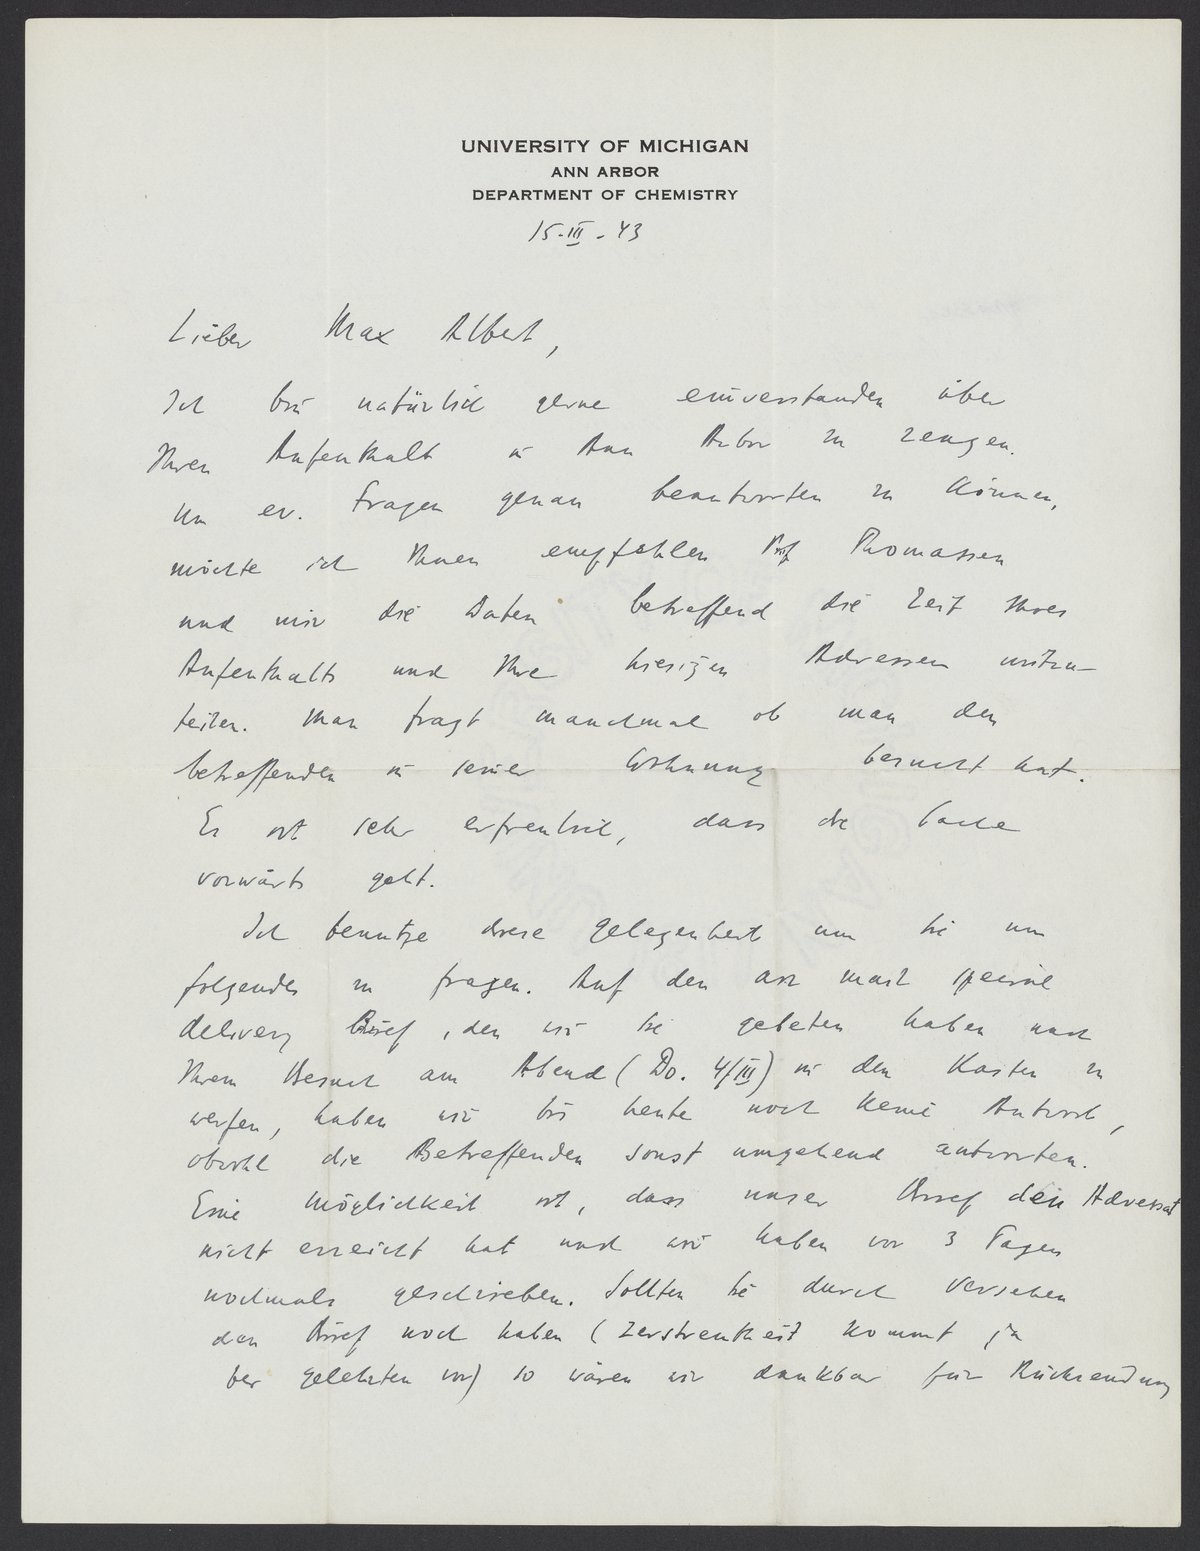 UNIVERSITY OF MICHIGAN
ANN ARBOR
DEPARTMENT OF CHEMISTRY
15-III-43
Lieber Max Albert,
Ich bin natürlich gerne einverstanden über
Ihren Aufenthalt in Ann Arbor zu zeugen.
Um ev. Fragen genau beantworten zu können,
möchte ich Ihnen empfehlen Prof Thomassen
und mir die Daten betreffend die Zeit Ihres
Aufenthalts und Ihre hiesigen Adressen mitzu-
teilen. Man fragt manchmal ob man den
betreffenden in seiner Wohnung besucht hat.
Es ist sehr erfreulich, dass die Sache
vorwärts geht.
Ich benutze diese Gelegenheit um Sie um
folgendes zu fragen. Auf den air mail special
delivery Brief, den wir Sie gebeten haben nach
Ihrem Besuch am Abend (Do. 4/III) in den Kasten zu
werfen, haben wir bis heute noch keine Antwort,
obwohl die Betreffenden sonst umgehend antworten.
Eine Möglichkeit ist, dass unser Brief den Adressat
nicht erreicht hat und wir haben vor 3 Tagen
nochmals geschrieben. Sollten Sie durch Versehen
den Brief noch haben (Zerstreutheit kommt ja
bei gelehrten vor) so wären wir dankbar für Rücksendung